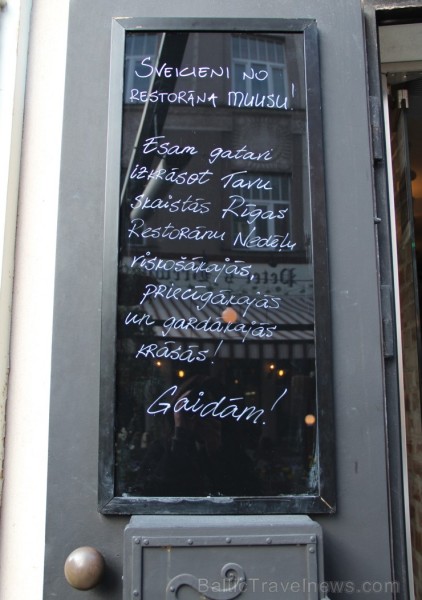 Sveicieni no
restorāna Muusu!
Esam gatavi
izkrāsot Tavu
skaistās Rīgas
Restorānu Nedēļu
viskošākajās,
priecīgākajās
un gardākajās
krāsās!
Gaidām!
BalticTravelnews.com